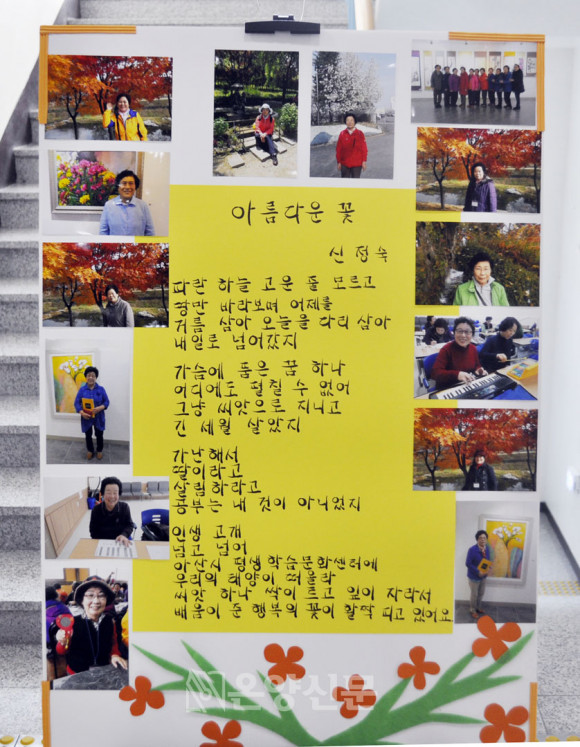 아름다운 꽃
신정숙
파란 하늘 고운 줄 모르고
땅만 바라보며 어제를
거름 삼아 오늘을 다리 삼아
내일로 넘어갔지
가슴에 품은 꿈 하나
어디에도 펼칠 수 없어
그냥 씨앗으로 지니고
긴 세월 살았지
가난해서
딸이라고
살림하라고
공부는 내 것이 아니었지
인생 고개
넘고 넘어
아산시 평생학습문화센터에
우리의 태양이 떠올라
씨앗 하나 싹이르고 잎이 자라서
배움이 준 행복의 꽃이 활짝 피고 있어요
온양신문